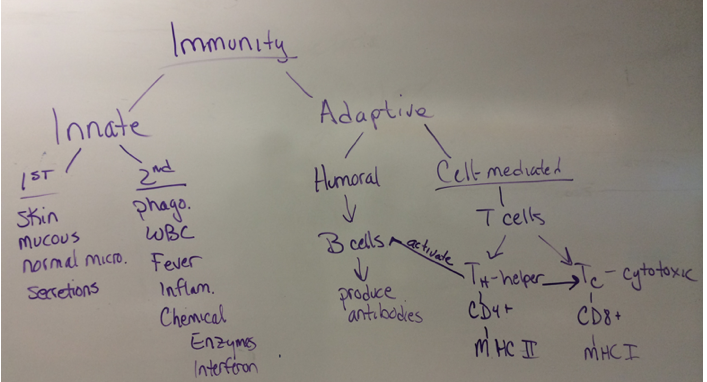 Immunity
Innate
Adaptive
1ST
Skin
mucous
normal micro.
Secretions
2nd
phago.
WBC
Fever
Inflam.
Chemical
Enzymes
Interferon
Humoral
B cells
produce
antibodies
activate
Cell-mediated
T cells
TH-helper
CD4+
MHC II
TC-cytotoxic
CD8+
MHC I